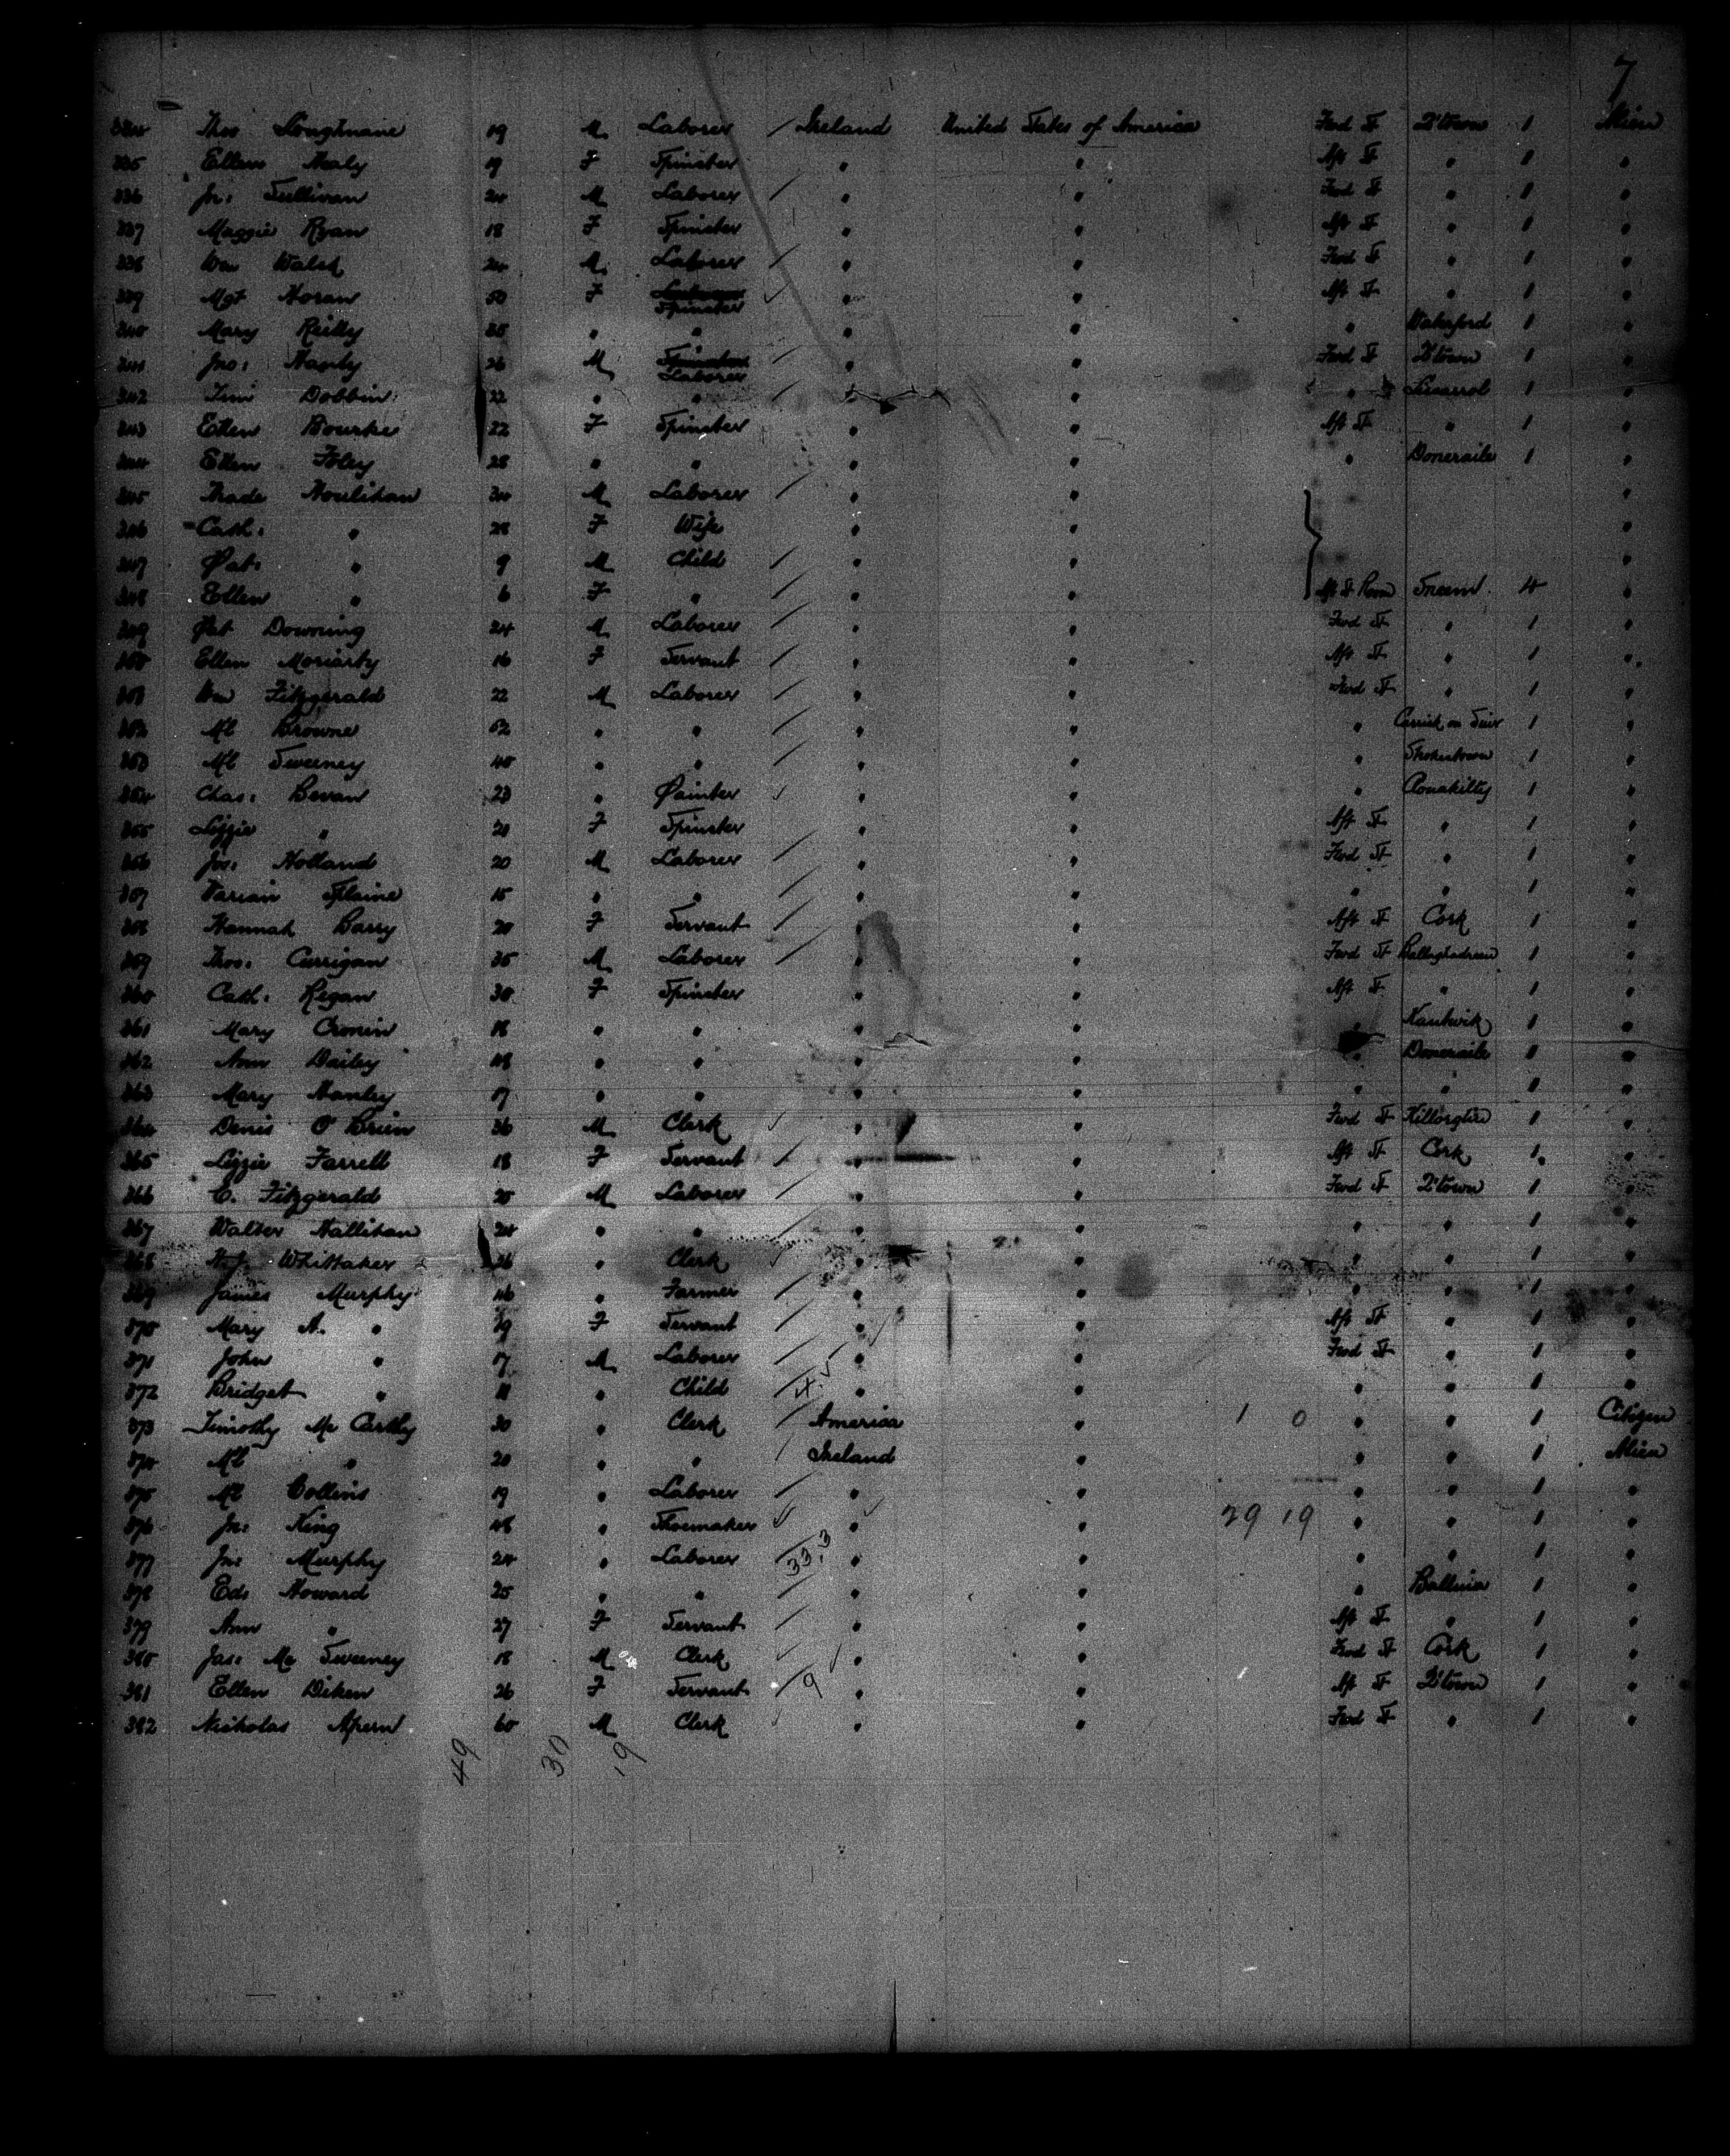 7
334 Thos Loughnane 19 M Laborer / Ireland United States of America Fwd St Q'town 1 Alien
335 Ellen Healy 19 F Spinster " " Aft St " 1 "
336 Jn: Sullivan 24 M Laborer / " " Fwd St " 1 "
337 Maggie Ryan 18 F Spinster " " Aft St " 1 "
338 Wm Walsh 24 M Laborer / " " Fwd St " 1 "
339 Mgt Horan 50 F Spinster ✓ " " Aft St " 1 "
340 Mary Reilly 35 " " " " " Waterford 1 "
341 Jno: Hanly 26 M Laborer / " " Fwd St Q'town 1 "
342 Tim Dobbin 22 " " / " " " 1 "
343 Ellen Bourke 22 F Spinster " " Aft St " 1 "
344 Ellen Foley 28 " " " " " Doneraile 1 "
345 Thade Houlihan 34 M Laborer / " " "
346 Cath: " 28 F Wife " " "
347 Pat: " 9 M Child / " " "
348 Ellen " 6 F " / " " Aft St Room Sneem 4 "
349 Pat Downing 24 M Laborer / " " Fwd St " 1 "
350 Ellen Moriarty 16 F Servant / " " Aft St " 1 "
351 Wm Fitzgerald 22 M Laborer / " " Fwd St " 1 "
352 Ml Browne 52 " " / " " " Carrick on Suir 1 "
353 Ml Sweeney 40 " " / " " " 1 "
354 Chas: Bevan 23 " Painter ✓ " " " Clonakilty 1 "
355 Lizzie " 20 F Spinster " " Aft St " 1 "
356 Jas: Holland 20 M Laborer / " " Fwd St " 1 "
357 Varian Splaine 15 " " / " " " " 1 "
358 Hannah Barry 20 F Servant / " " Aft St Cork 1 "
359 Thos: Carrigan 35 M Laborer / " " Fwd St Ballaghadreen 1 "
360 Cath: Regan 30 F Spinster " " Aft St " 1 "
361 Mary Cronin 18 " " " " " Kanturk 1 "
362 Ann Dailey 18 " " " " " Doneraile 1 "
363 Mary Hanley 17 " " " " " " 1 "
364 Denis O'Brien 36 M Clerk ✓ " " Fwd St Killorglin 1 "
365 Lizzie Farrell 18 F Servant / " " Aft St Cork 1 "
366 C. Fitzgerald 25 M Laborer / " " Fwd St Q'town 1 "
367 Walter Hallihan 24 " " / " " " " 1 "
368 Whittaker 26 " Clerk ✓ " " " " 1 "
369 James Murphy 46 " Farmer / " " " " 1 "
370 Mary A. " 19 F Servant / " " Aft St " 1 "
371 John " 17 M Laborer / " " Fwd St " 1 "
372 Bridget " 11 " Child / 4. ✓ " " " " 1 "
373 Timothy Mc Carthy 30 " Clerk / America " 1 0 " " 1 Citizen
374 Ml " 20 " " / Ireland " " " 1 Alien
375 Ml Collins 19 " Laborer / " " " " 1 "
376 Jn: King 48 " Shoemaker ✓ " " 29 19 " " 1 "
377 Jno Murphy 24 " Laborer / 33.3 " " " " 1 "
378 Ed: Howard 25 " " / " " " Ballina 1 "
379 Ann " 27 F Servant / " " Aft St " 1 "
380 Jas: Mc Sweeney 18 M Clerk ✓ " " Fwd St Cork 1 "
381 Ellen Diken 26 F Servant / 9 " " Aft St Q'town 1 "
382 Nicholas Ahern 60 M Clerk ✓ " " Fwd St " 1 "
49 30 19